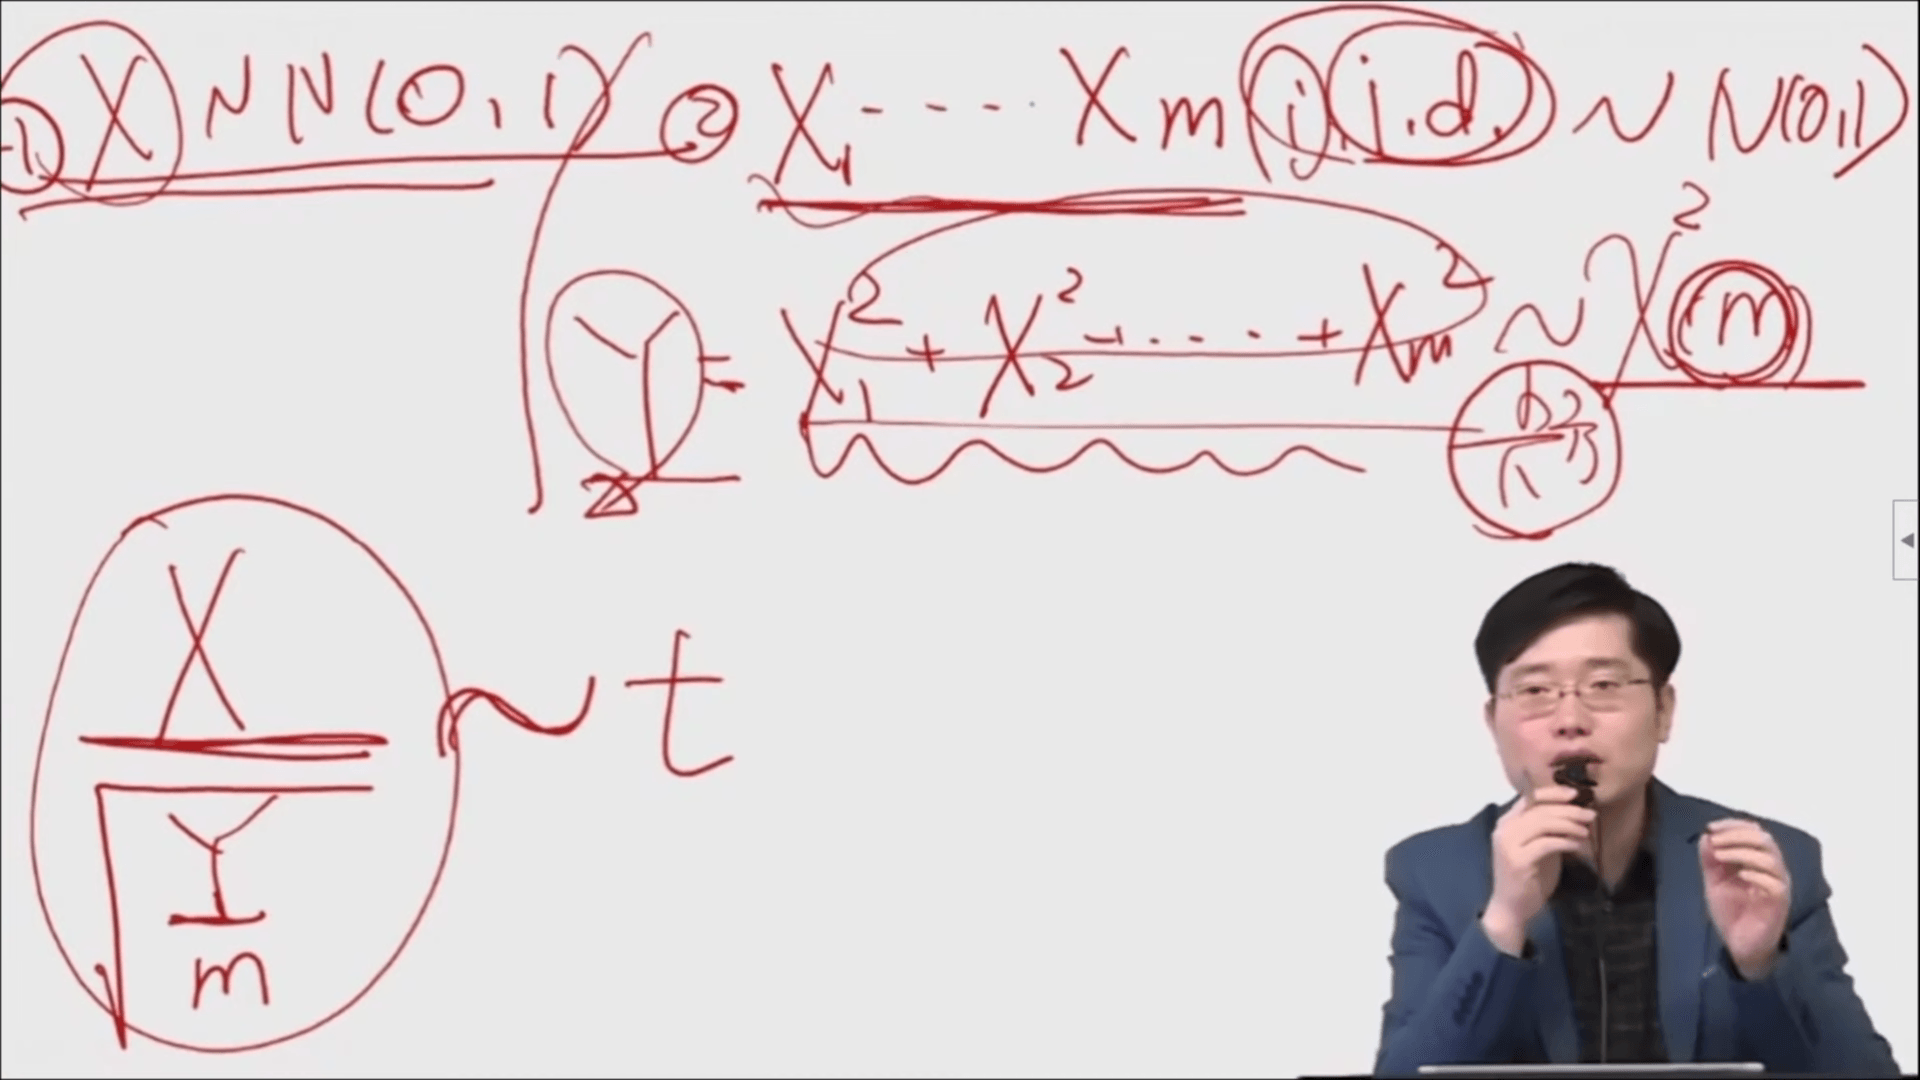 ① X ~ N(0,1) ② X₁ ---- Xm i.i.d. ~ N(0,1)
Y = X₁² + X₂² + ···· + Xm² ~ χ²(m)
X
~ t
Y
m